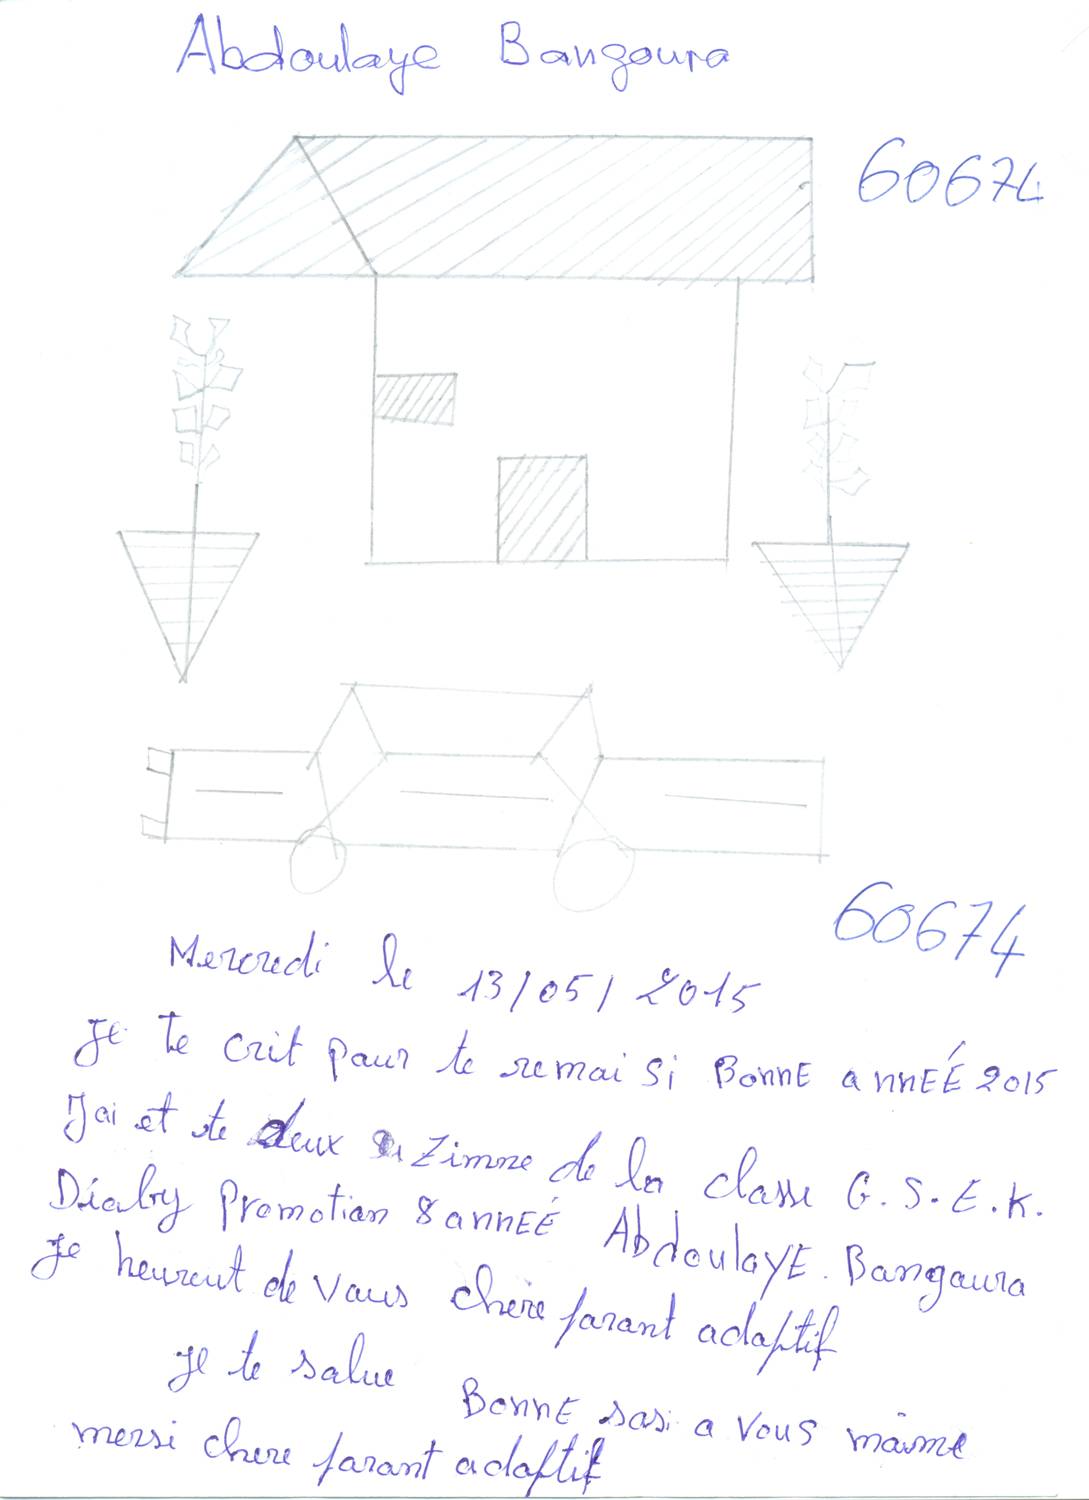 Abdoulaye Bangoura
60674
60674
Mercredi le 13/05/2015
Je te crit paur te remai si BonnE annEÉ 2015
J'ai et te deux Zimne de la classe G.S.E.K.
Diaby Promotian 8 annEÉ AbdoulayE. Bangaura
Je heureut de vaus chere parant adaptif
Je te salue BonnE sasi a vous mâime
mersi chere parant adaptif